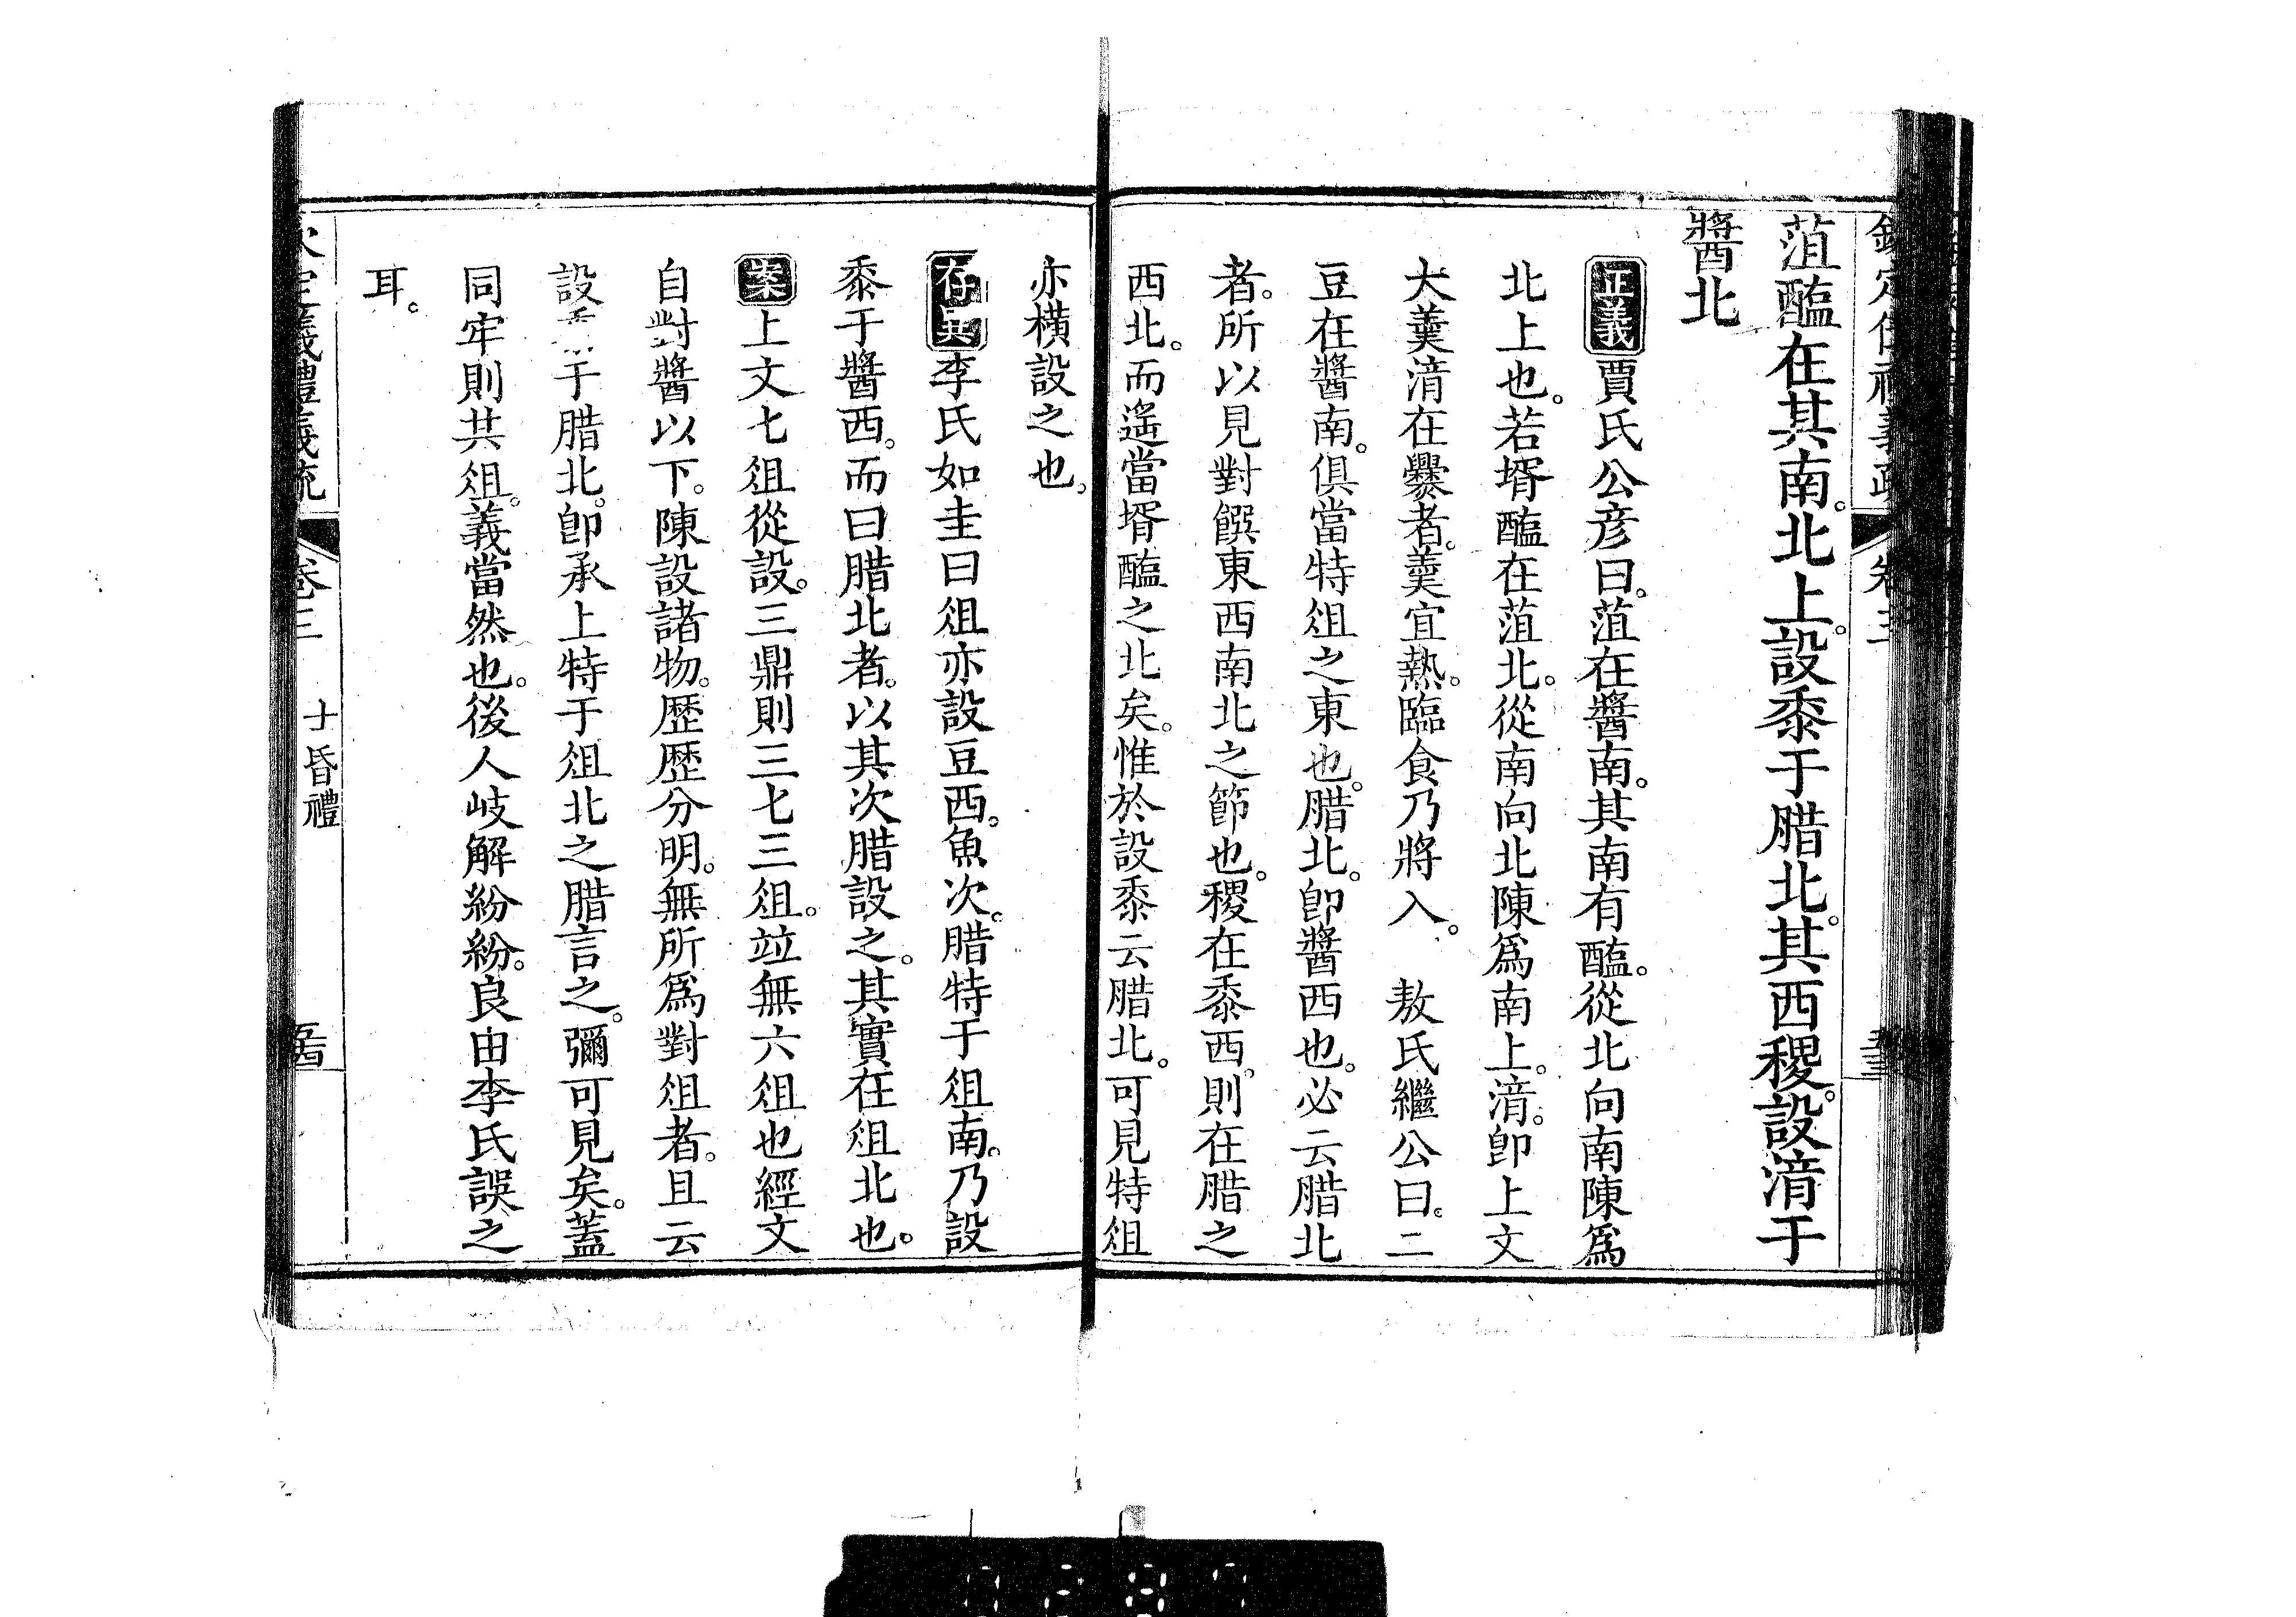 菹醢在其南。北上。設黍于腊北。其西稷。設湆于
醬北
正義賈氏公彦曰。菹在醬南。其南有醢。從北向南陳爲
北上也。若壻醢在菹北。從南向北陳爲南上。湆。卽上文
大羹湆在爨者。羹宜熱。臨食乃將入。 敖氏繼公曰。二
豆在醬南。俱當特俎之東也。腊北。卽醬西也。必云腊北
者。所以見對饌東西南北之節也。稷在黍西。則在腊之
西北。而遙當壻醢之北矣。惟於設黍云腊北。可見特俎
亦橫設之也。
存異李氏如圭曰俎亦設豆西。魚次。腊特于俎南。乃設
黍于醬西。而曰腊北者。以其次腊設之。其實在俎北也。
案上文七俎從設。三鼎則三七三俎。竝無六俎也經文
自對醬以下。陳設諸物。歷歷分明。無所爲對俎者。且云
設 于腊北。卽承上特于俎北之腊言之。彌可見矣。蓋
同牢則共俎。義當然也。後人岐解紛紛。良由李氏誤之
耳。
禮義疏 卷三 士昏禮